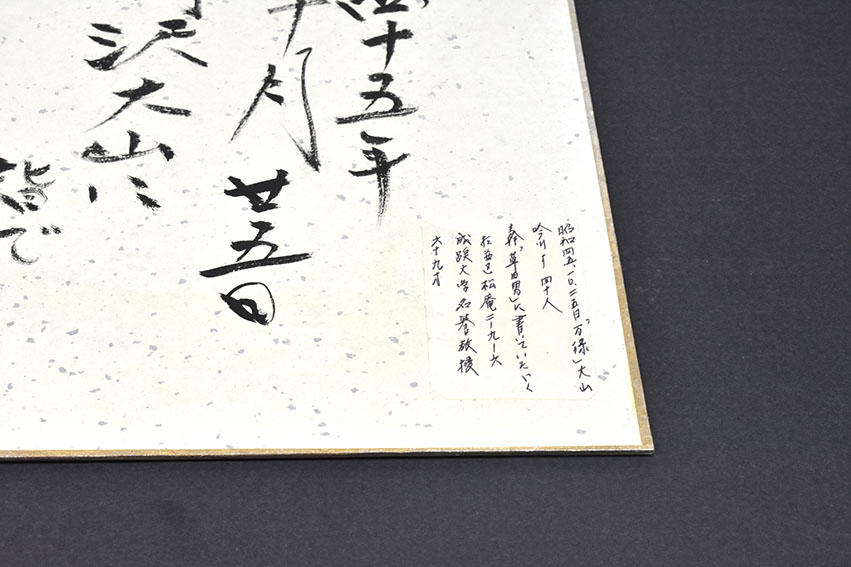 四十五年
十月
廿五日
沢大山に
皆で
昭和四五、一〇、二五日「万緑」大山
吟行 四十人
「草田男」に書いていたゞく
杉並区松庵二ー九ー六
成蹊大学名誉教授
六十九才